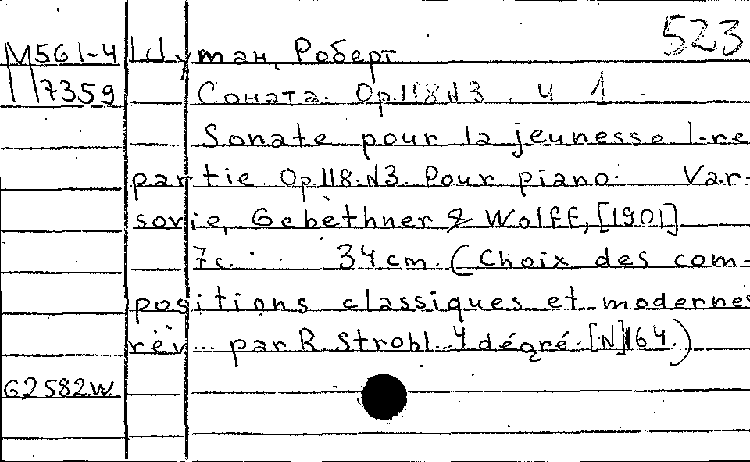 523
М561-4 Шуман, Роберт
17359 Соната. Op.118.N3. ч 1
Sonate pour la jeunesse 1-re
partie Op.118.N3. Pour piano. Var-
sovie, Gebethner & Wolff, [1901]
7с. 34 cm. (Choix des com-
positions classiques et modernes
rév... par R. Strobl. 4 dégré. [N]164.)
G2582W